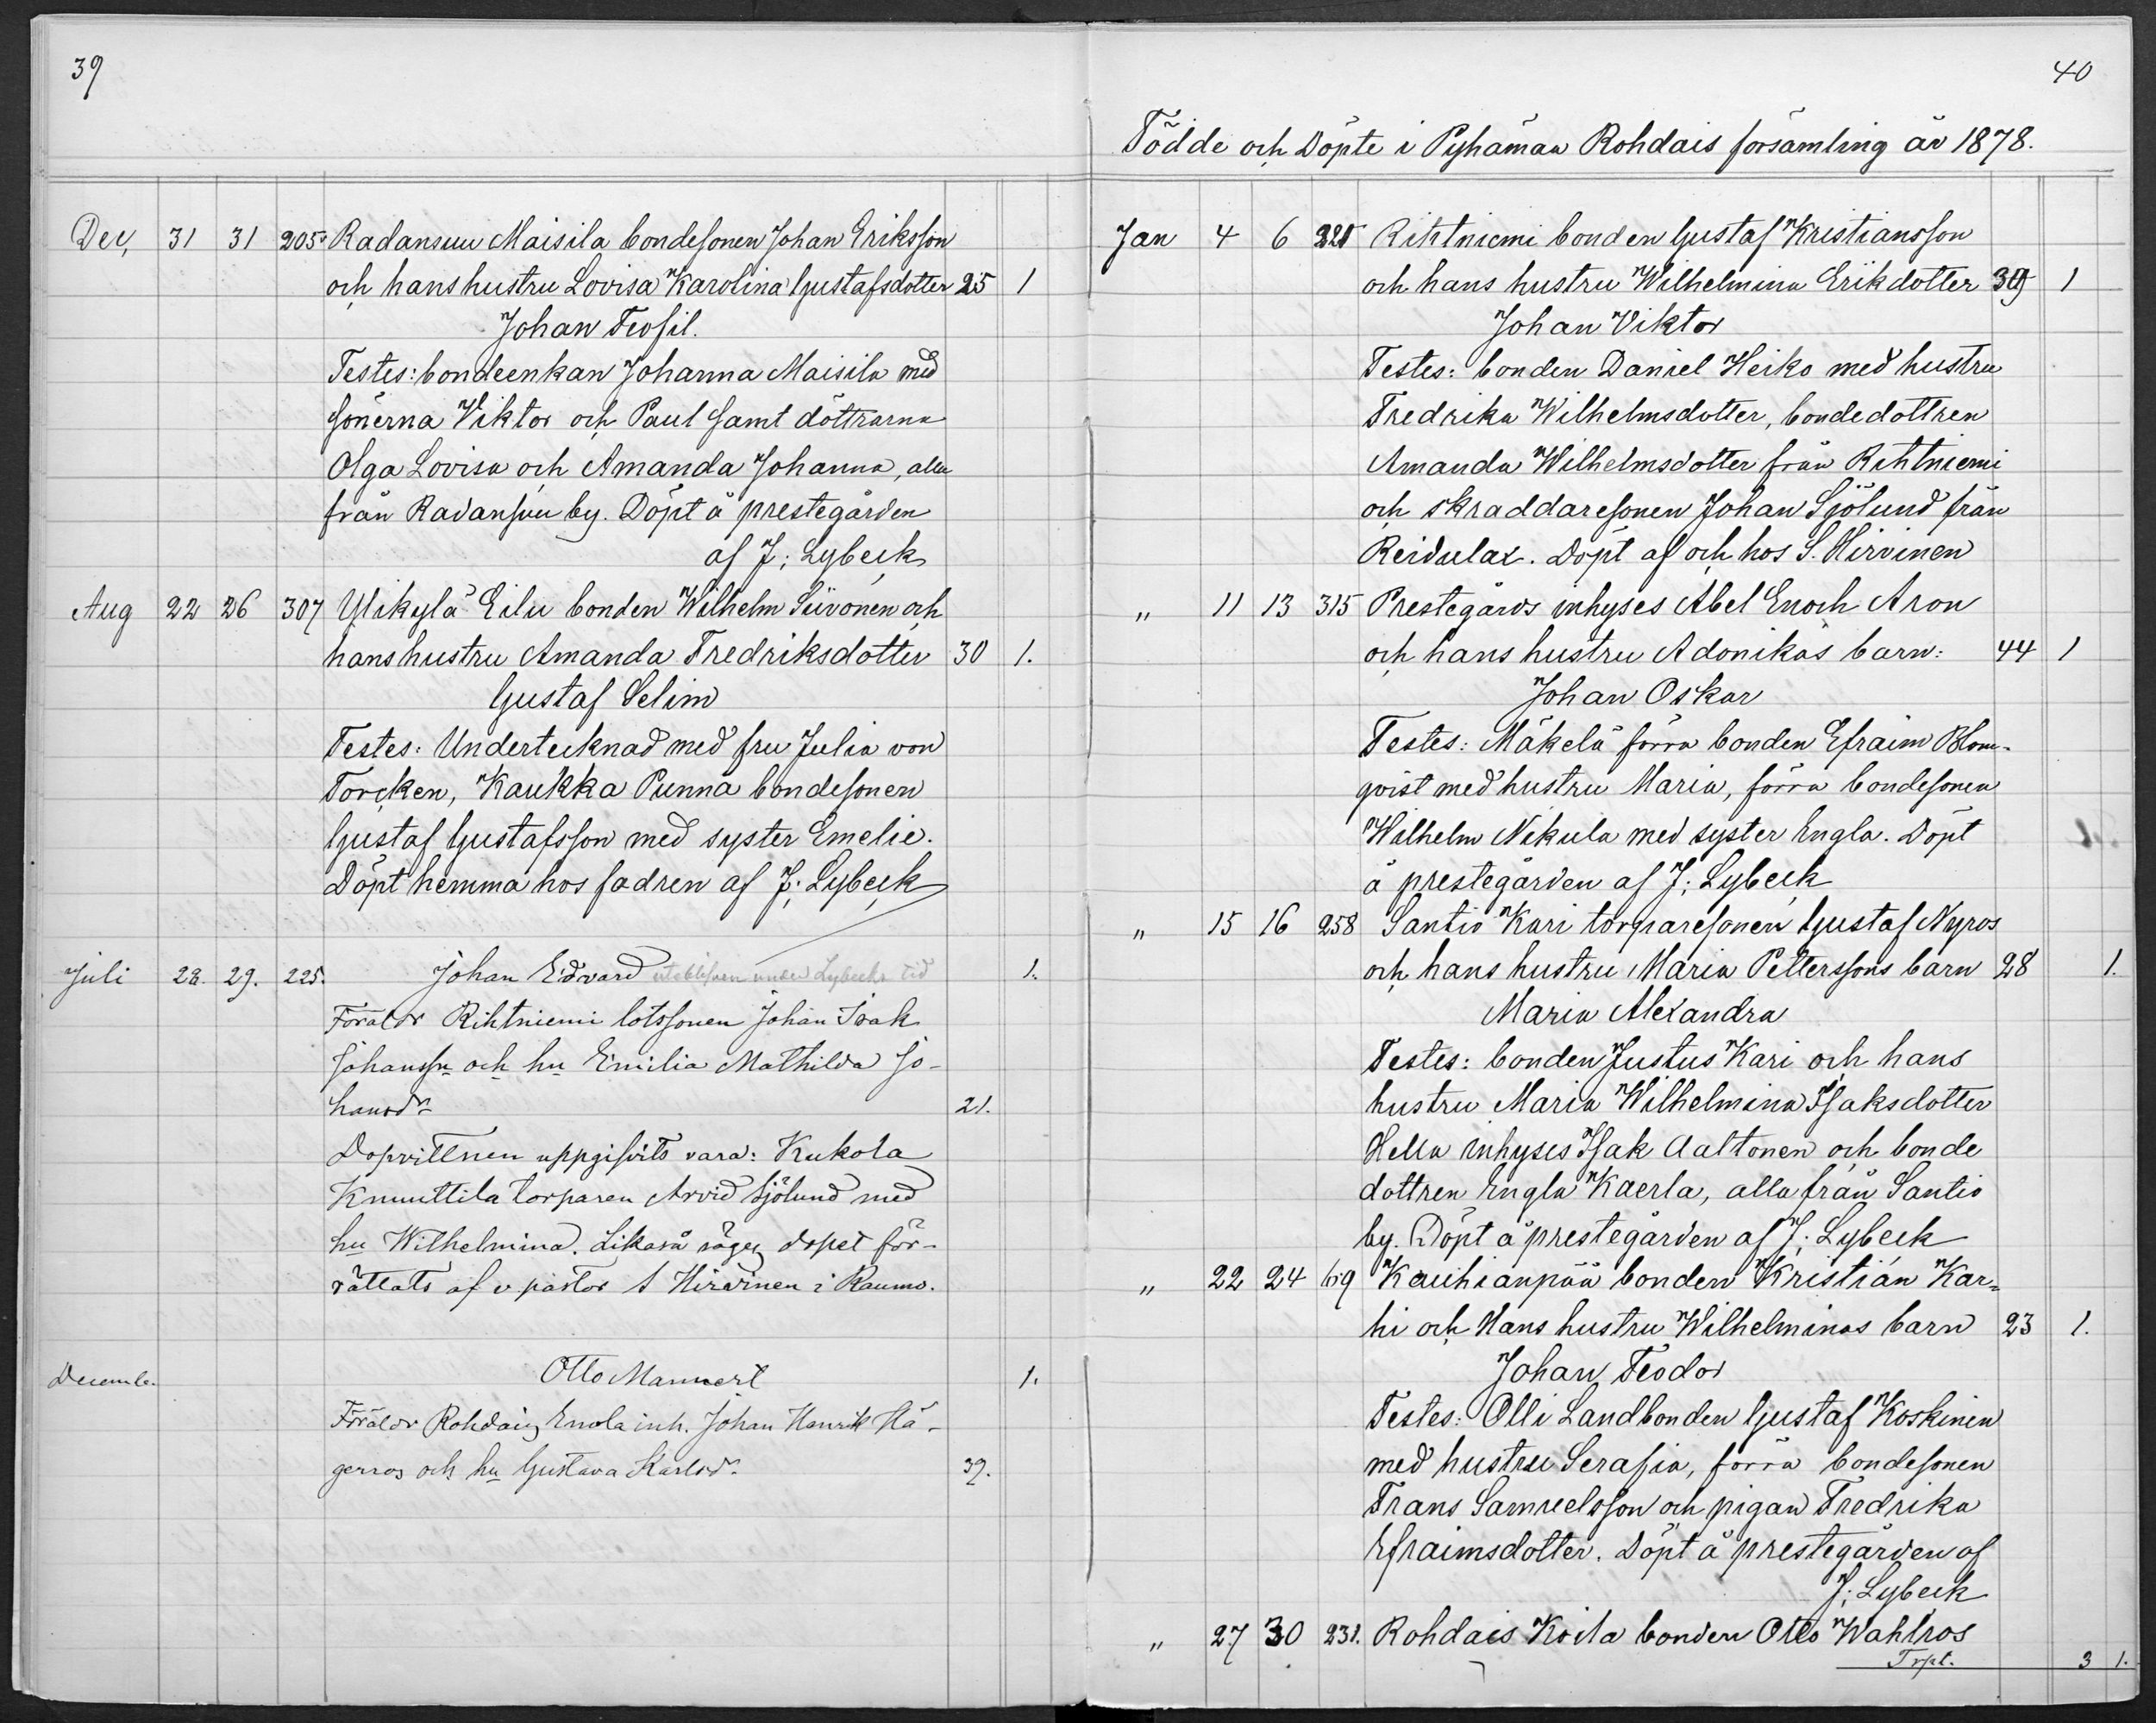 39
Dec, 31 31 205. Radansuu Maisila bondesonen Johan Eriksson
och hans hustru Lovisa Karolina Gustafsdotter 25 1
Johan Teofil.
Testes: bondeenkan Johanna Maisila med
sönerna Viktor och Paul samt döttrarna
Olga Lovisa och Amanda Johanna, alla
från Radansuu by. Döpt å prestegården
af J: Lybeck
Aug 22 26 307 Ylikylä Eilu bonden Wilhelm Siivonen och
hans hustru Amanda Fredriksdotter 30 1.
Gustaf Selim
Testes: Undertecknad med fru Julia von
Torcken, Kaukka Punna bondesonen
Gustaf Gustafsson med syster Emelie.
Döpt hemma hos fadren af J: Lybeck
Juli 28. 29. 225. Johan Edvard under Lybecks tid 1.
Föräldr Rihtniemi lotssonen Johan Isak
Johanssn och hu Emilia Mathilda Jo-
hansdr 21.
Dopvittnen uppgifvits vara: Kukola
Knuuttila torparen Arvid Sjölund med
hu Wilhelmina. Likaså säges dopet för-
rättats af v pastor S Hirvinen i Raumo.
Decemb. Otto Mannert 1.
Föräldr Rohdais Enola inh. Johan Henrik Hä-
gerros och hu Gustava Karlsdr 39.
40
Födde och Döpte i Pyhämaa Rohdais församling år 1878.
Jan 4 6 221 Rihtniemi bonden Gustaf Kristiansson
och hans hustru Wilhelmina Erikdotter 39 1
Johan Viktor
Testes: bonden Daniel Heiko med hustru
Fredrika Wilhelmsdotter, bondedottren
Amanda Wilhelmsdotter från Rihtniemi
och skraddaresonen Johan Sjölund från
Reidulax. Döpt af och hos S. Hirvinen
" 11 13 315 Prestegårds inhyses Abel Enoch Aron
och hans hustru Adonikas barn: 44 1
Johan Oskar
Testes: Mäkelä förra bonden Efraim Blom-
qvist med hustru Maria, förra bondesonen
Wilhelm Nikula med syster Engla. Döpt
å prestegården af J: Lybeck
" 15 16 258 Santio Kari torparesonen Gustaf Nyros
och hans hustru Maria Petterssons barn 28 1.
Maria Alexandra
Testes: bonden Justus Kari och hans
hustru Maria Wilhelmina Isaksdotter
Hella inhyses Isak Aaltonen och bonde
dottren Engla Kaerla, alla från Santio
by. Döpt å prestegården af J: Lybeck
" 22 24 69 Kauhianpää bonden Kristian Kar=
hi och hans hustru Wilhelminas barn 23 1.
Johan Teodor
Testes: Olli Landbonden Gustaf Koskinen
med hustru Serafia, förra bondesonen
Frans Samuelsson och pigan Fredrika
Efraimsdotter. Döpt å prestegården af
J: Lybeck
" 27 30 231. Rohdais Koila bonden Otto Wahlros
Trpt. 3 1.